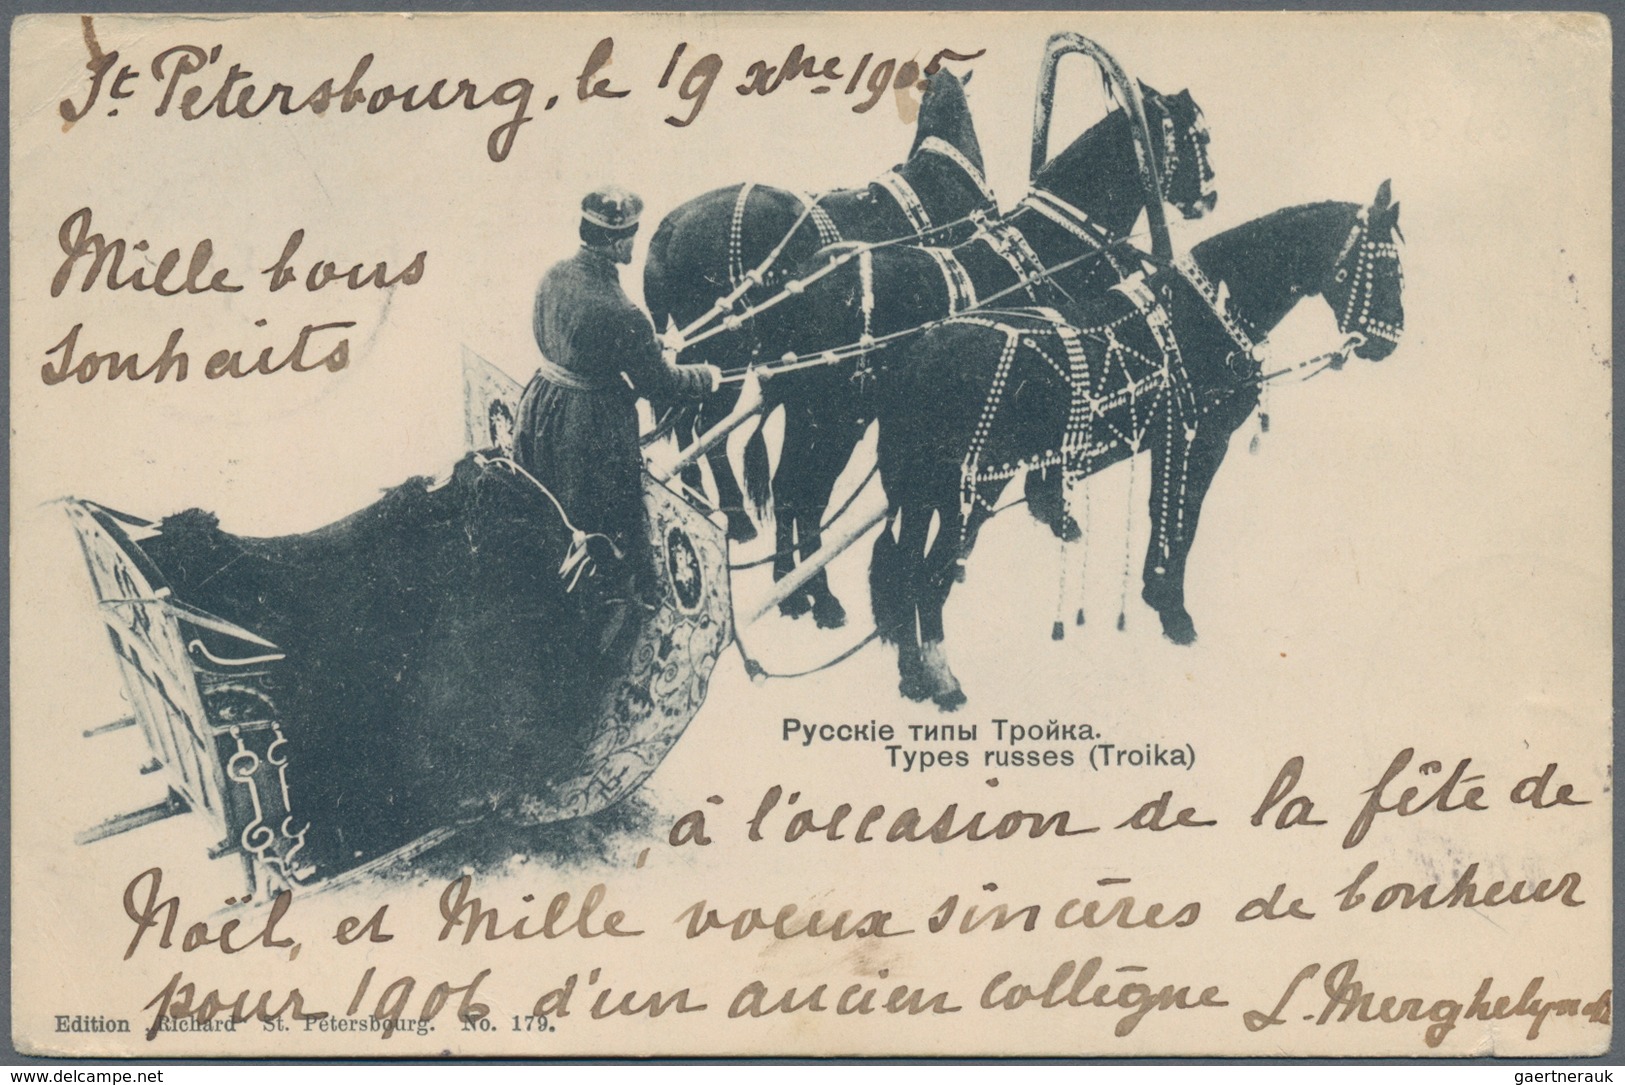 St. Pétersbourg, le 19 xbre 1905
Mille bons
souhaits
Русскіе типы Тройка.
Types russes (Troika)
à l'occasion de la fête de
Noël, et Mille voeux sincères de bonheur
pour 1906 d'un ancien collègue
Edition „Richard“ St. Petersbourg. No. 179.
delcampe.net
gaertnerauk